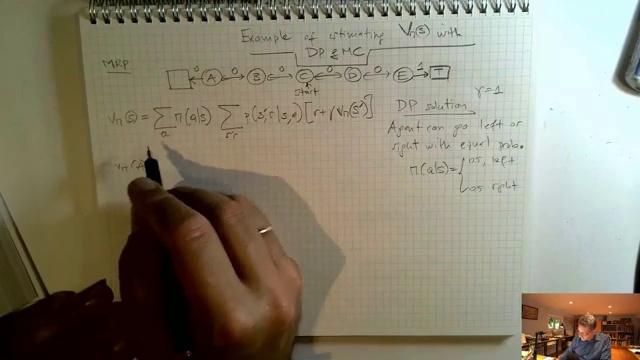 Example of estimating Vπ(s) with
DP & MC
MRP
0 A 0 B 0 C 0 D 0 E 1 T
start
γ=1
Vπ(s) = Σ π(a|s) Σ p(s',r|s,a) [r+γVπ(s')]
a s'r
DP solution
Agent can go left or
right with equal prob.
π(a|s)= { 0.5, left
0.5 right
Vπ(A